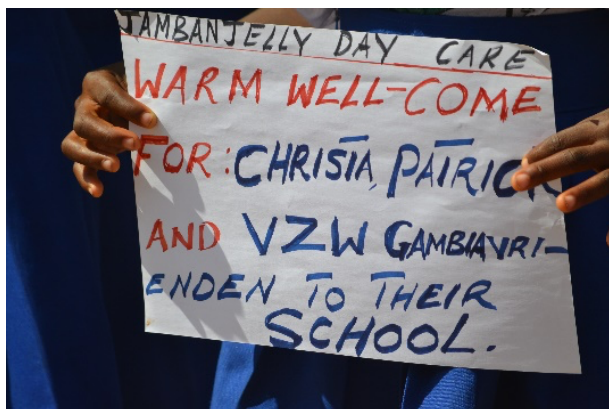 JAMBANJELLY DAY CARE
WARM WELL-COME
FOR: CHRISTA, PATRICK
AND VZW GAMBIAVRI-
ENDEN TO THEIR
SCHOOL.